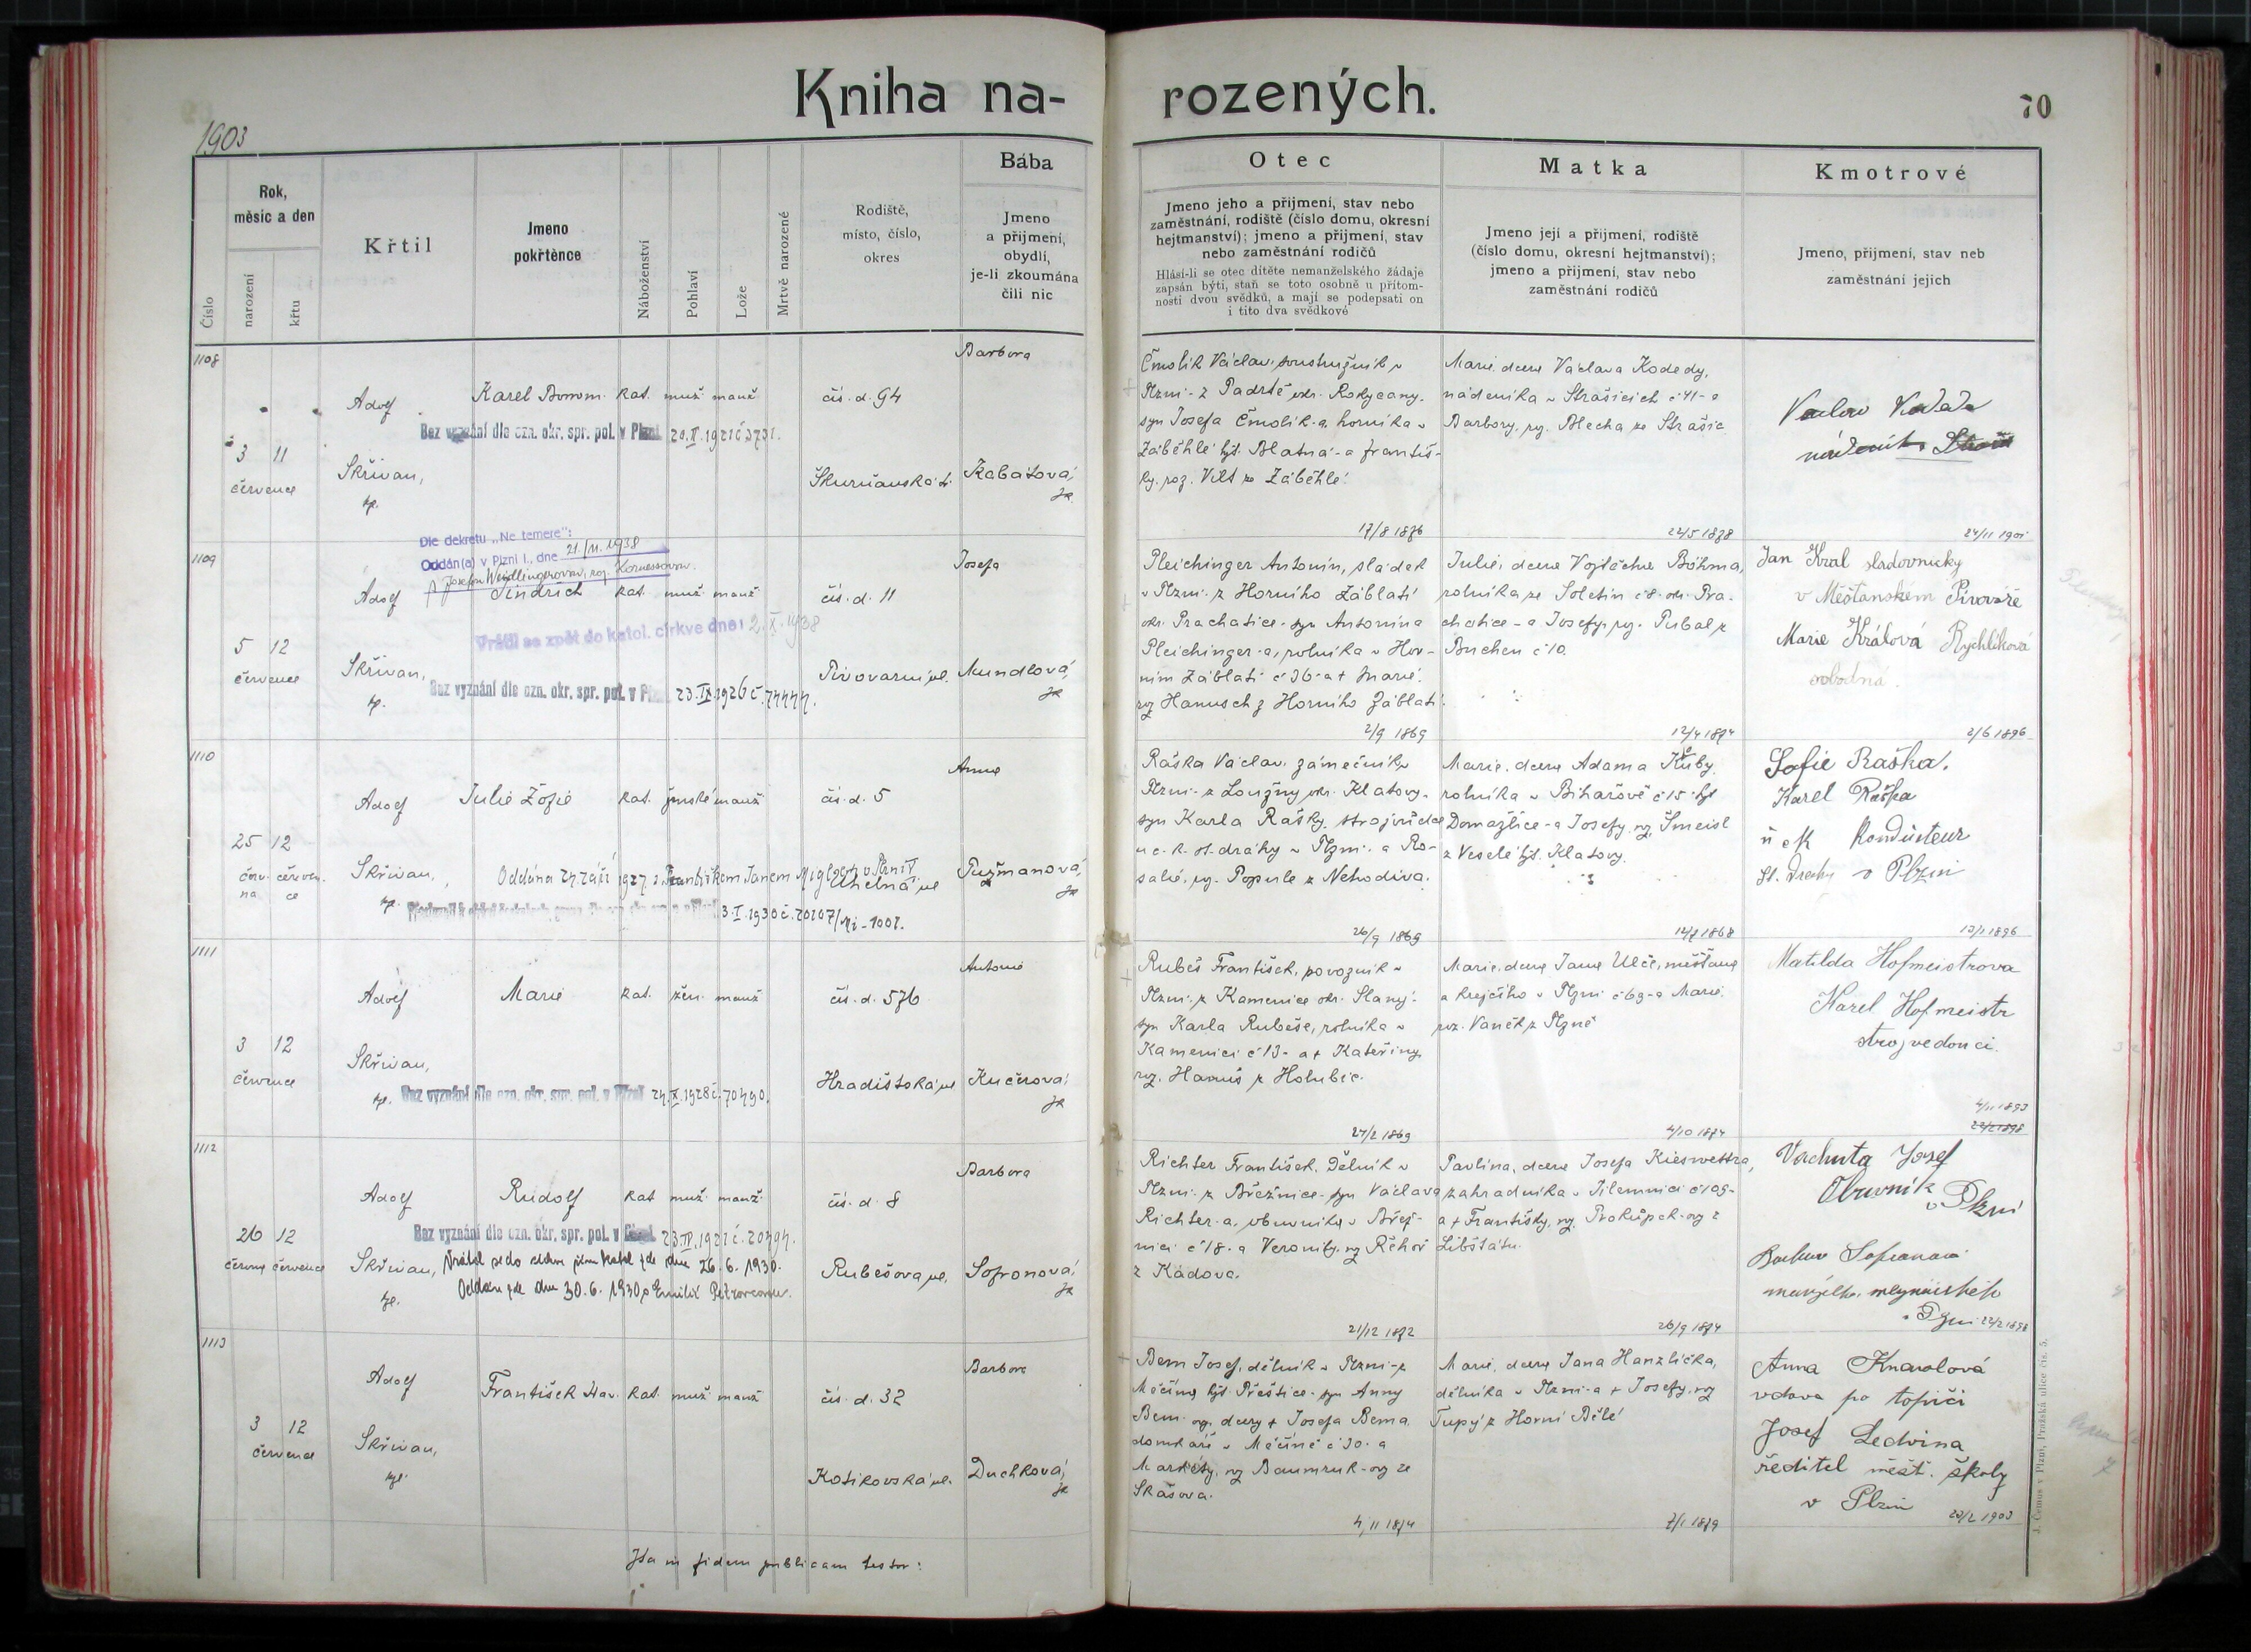 Kniha na-
rozených.
70
1903
Číslo
Rok,
měsíc a den
narození
křtu
Křtil
Jmeno
pokřtěnce
Náboženství
Pohlaví
Lože
Mrtvě narozené
Rodiště,
místo, číslo,
okres
Bába
Jmeno
a přijmení,
obydlí,
je-li zkoumána
čili nic
Otec
Jmeno jeho a přijmení, stav nebo
zaměstnání, rodiště (číslo domu, okresní
hejtmanství); jmeno a přijmení, stav
nebo zaměstnání rodičů
Hlásí-li se otec dítěte nemanželského žádaje
zapsán býti, staň se toto osobně u přítom-
nosti dvou svědků, a mají se podepsati on
i tito dva svědkové
Matka
Jmeno její a přijmení, rodiště
(číslo domu, okresní hejtmanství);
jmeno a přijmení, stav nebo
zaměstnání rodičů
Kmotrové
Jmeno, přijmení, stav neb
zaměstnání jejich
1108
3 11
července
Adolf
Skřivan,
kp.
Karel Borom. kat. muž. manž.
Bez vyznání dle ozn. okr. spr. pol. v Plzni 1921
čís. d. 94
Škvrňanská tř.
Barbora
Kabátová,
zk.
Čmolík Václav, soustružník v
Plzni - z Padrtě okr. Rokycany,
syn Josefa Čmolík-a, horníka v
Záběhlé hjt. Blatná - a Františ-
ky, roz. Vilt ze Záběhlé.
17/8 1876
Marie, dcera Václava Kodedy,
nádeníka v Strašicích č 41 - a
Barbory, roz. Blecha ze Strašic
22/5 1878
Václav
nádeník
24/11 1901
1109
5 12
července
Adolf
Skřivan,
kp.
Dle dekretu „Ne temere":
Oddán(a) v Plzni I., dne 21./11. 1938
Jindřich kat. muž. manž.
Vrátil se zpět do katol. církve dne: 2.X.1938
Bez vyznání dle ozn. okr. spr. pol. v Plzni 23.IX.1926 č. 74444.
čís. d. 11
Pivovarní ul.
Josefa
Mundlová,
zk
Pleichinger Antonín, sládek
v Plzni - z Horního Záblatí
okr. Prachatice - syn Antonína
Pleichinger-a, rolníka v Hor-
ním Záblatí č 36 - a + Marie,
roz Hanusch z Horního Záblatí.
2/9 1869
Julie, dcera Vojtěcha Böhma,
rolníka ze Soletin č 8. okr. Pra-
chatice - a Josefy, roz. Pubal z
Buchen č 10.
12/4 1874
Jan Král sladovnický
v Měšťanském Pivováře
Marie Králová Rychlíková
svobodná.
2/6 1896
1110
25 12
červ- červen-
na ce
Adolf
Skřivan,
kp.
Julie Žofie kat. ženské manž.
Oddána 24. září 1927 s Františkem Janem
3.I.1930 č. 20207/
čís. d. 5
Úhelná ul
Anna
Puzmanová,
zk
Raška Václav, zámečník v
Plzni - z Loužny okr. Klatovy,
syn Karla Rašky, strojvůdce
u c. k. st. dráhy v Plzni - a Ro-
salie, roz. Poperle z Nehodiva.
26/9 1869
Marie, dcera Adama Kuby,
rolníka v Bihařově č 15 hjt
Domažlice - a Josefy, roz. Šmeisl
z Veselé hjt. Klatovy.
12/8 1868
Sofie Raška.
Karel Raška
Kondukteur
st. Drahy v Plzni
13/1 1896
1111
3 12
července
Adolf
Skřivan,
kp.
Marie kat. žen. manž
Bez vyznání dle ozn. okr. spr. pol. v Plzni 24.X.1928 č. 70490.
čís. d. 576
Hradišťská ul
Antonie
Kučerová,
zk
Rubeš František, povozník v
Plzni - z Kamenice okr. Slaný -
syn Karla Rubeše, rolníka v
Kamenici č 13 - a + Kateřiny,
roz. Hanuš z Holubic.
27/2 1869
Marie, dcera Jana Ulče, měšťana
a krejčího v Plzni č 69 - a Marie,
roz. Vaněk z Plzně
4/10 1874
Matilda Hofmeistrova
Karel Hofmeistr
strojvedoucí.
4/11 1893
22/2 1898
1112
26 12
června července
Adolf
Skřivan,
kp.
Rudolf kat muž. manž.
Bez vyznání dle ozn. okr. spr. pol. v Plzni 1921 č. 20494.
Vrátil se do církve řím. katol. zde dne 26. 6. 1930.
Oddán zde dne 30. 6. 1930 s Emilií
čís. d. 8
Rubešova ul.
Barbora
Sofronová,
zk
Richter František, dělník v
Plzni - z Březnice - syn Václava
Richter-a, obuvníka v Břez-
nici č 18 - a Veroniky, roz Řehoř
z Kádova.
21/12 1872
Pavlina, dcera Josefa Kieswettra,
zahradníka v Jilemnici č 109 -
a + Františky, roz. Prokůpek-ovy z
Libštátu.
26/9 1874
Vachuta Josef
Obuvník v Plzni
manželka mlynářského
22/2 1898
1113
3 12
července
Adolf
Skřivan,
kp.
František Xav. kat. muž. manž
čís. d. 32
Kotikovská ul.
Barbora
Duchková,
zk
Bem Josef, dělník v Plzni - z
Měčína hjt. Přeštice - syn Anny
Bem-ovy, dcery + Josefa Bema,
domkáře v Měčíně č 30 - a
Markéty, roz Baumruk-ovy ze
Skašova.
4/11 1874
Marie, dcera Jana Hanzlíčka,
dělníka v Plzni - a + Josefy, roz
Tupý z Horní Bělé
7/1 1879
Anna Knarolová
vdova po topiči
Josef Ledvina
ředitel měšť. školy
v Plzni
23/2 1903
Ita in fidem publicam testor:
J. Čemus v Plzni, Pražská ulice čís. 5.